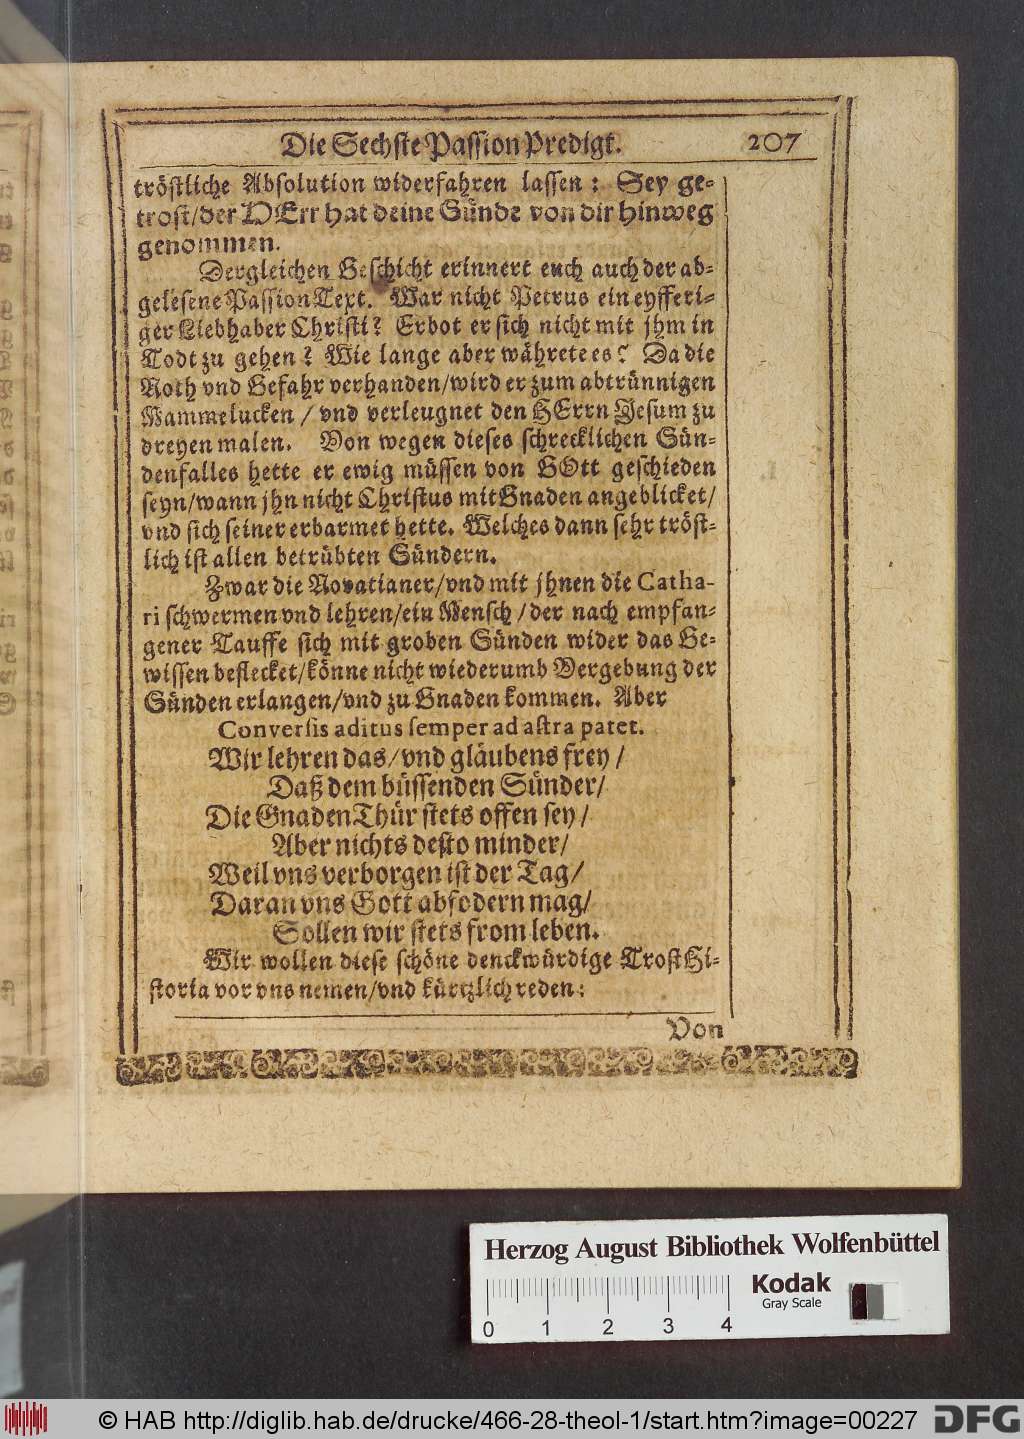 Die Sechste Passion Predigt. 207
tröstliche Absolution widerfahren lassen: Sey ge-
trost/der HErr hat deine Sünde von dir hinweg
genommen.
Dergleichen Geschicht erinnert euch auch der ab-
gelesene Passion Text. War nicht Petrus ein eyfferi-
ger Liebhaber Christi? Erbot er sich nicht mit jhm in
Todt zu gehen? Wie lange aber währete es? Da die
Noth vnd Gefahr verhanden/wird er zum abtrünnigen
Mammelucken/vnd verleugnet den HErrn Jesum zu
dreyen malen. Von wegen dieses schrecklichen Sün-
denfalles hette er ewig müssen von GOtt geschieden
seyn/wann jhn nicht Christus mit Gnaden angeblicket/
vnd sich seiner erbarmet hette. Welches dann sehr tröst-
lich ist allen betrübten Sündern.
Zwar die Novatianer/vnd mit jhnen die Catha-
ri schwermen vnd lehren/ein Mensch/der nach empfan-
gener Tauffe sich mit groben Sünden wider das Ge-
wissen beflecket/könne nicht wiederumb Vergebung der
Sünden erlangen/vnd zu Gnaden kommen. Aber
Conversis aditus semper ad astra patet.
Wir lehren das/vnd gläubens frey/
Daß dem büssenden Sünder/
Die Gnaden Thür stets offen sey/
Aber nichts desto minder/
Weil vns verborgen ist der Tag/
Daran vns Gott abfodern mag/
Sollen wir stets from leben.
Wir wollen diese schöne denckwürdige Trost Hi-
storia vor vns nemen/vnd kürtzlich reden:
Von
Herzog August Bibliothek Wolfenbüttel
Kodak
Gray Scale
0 1 2 3 4
© HAB http://diglib.hab.de/drucke/466-28-theol-1/start.htm?image=00227
DFG